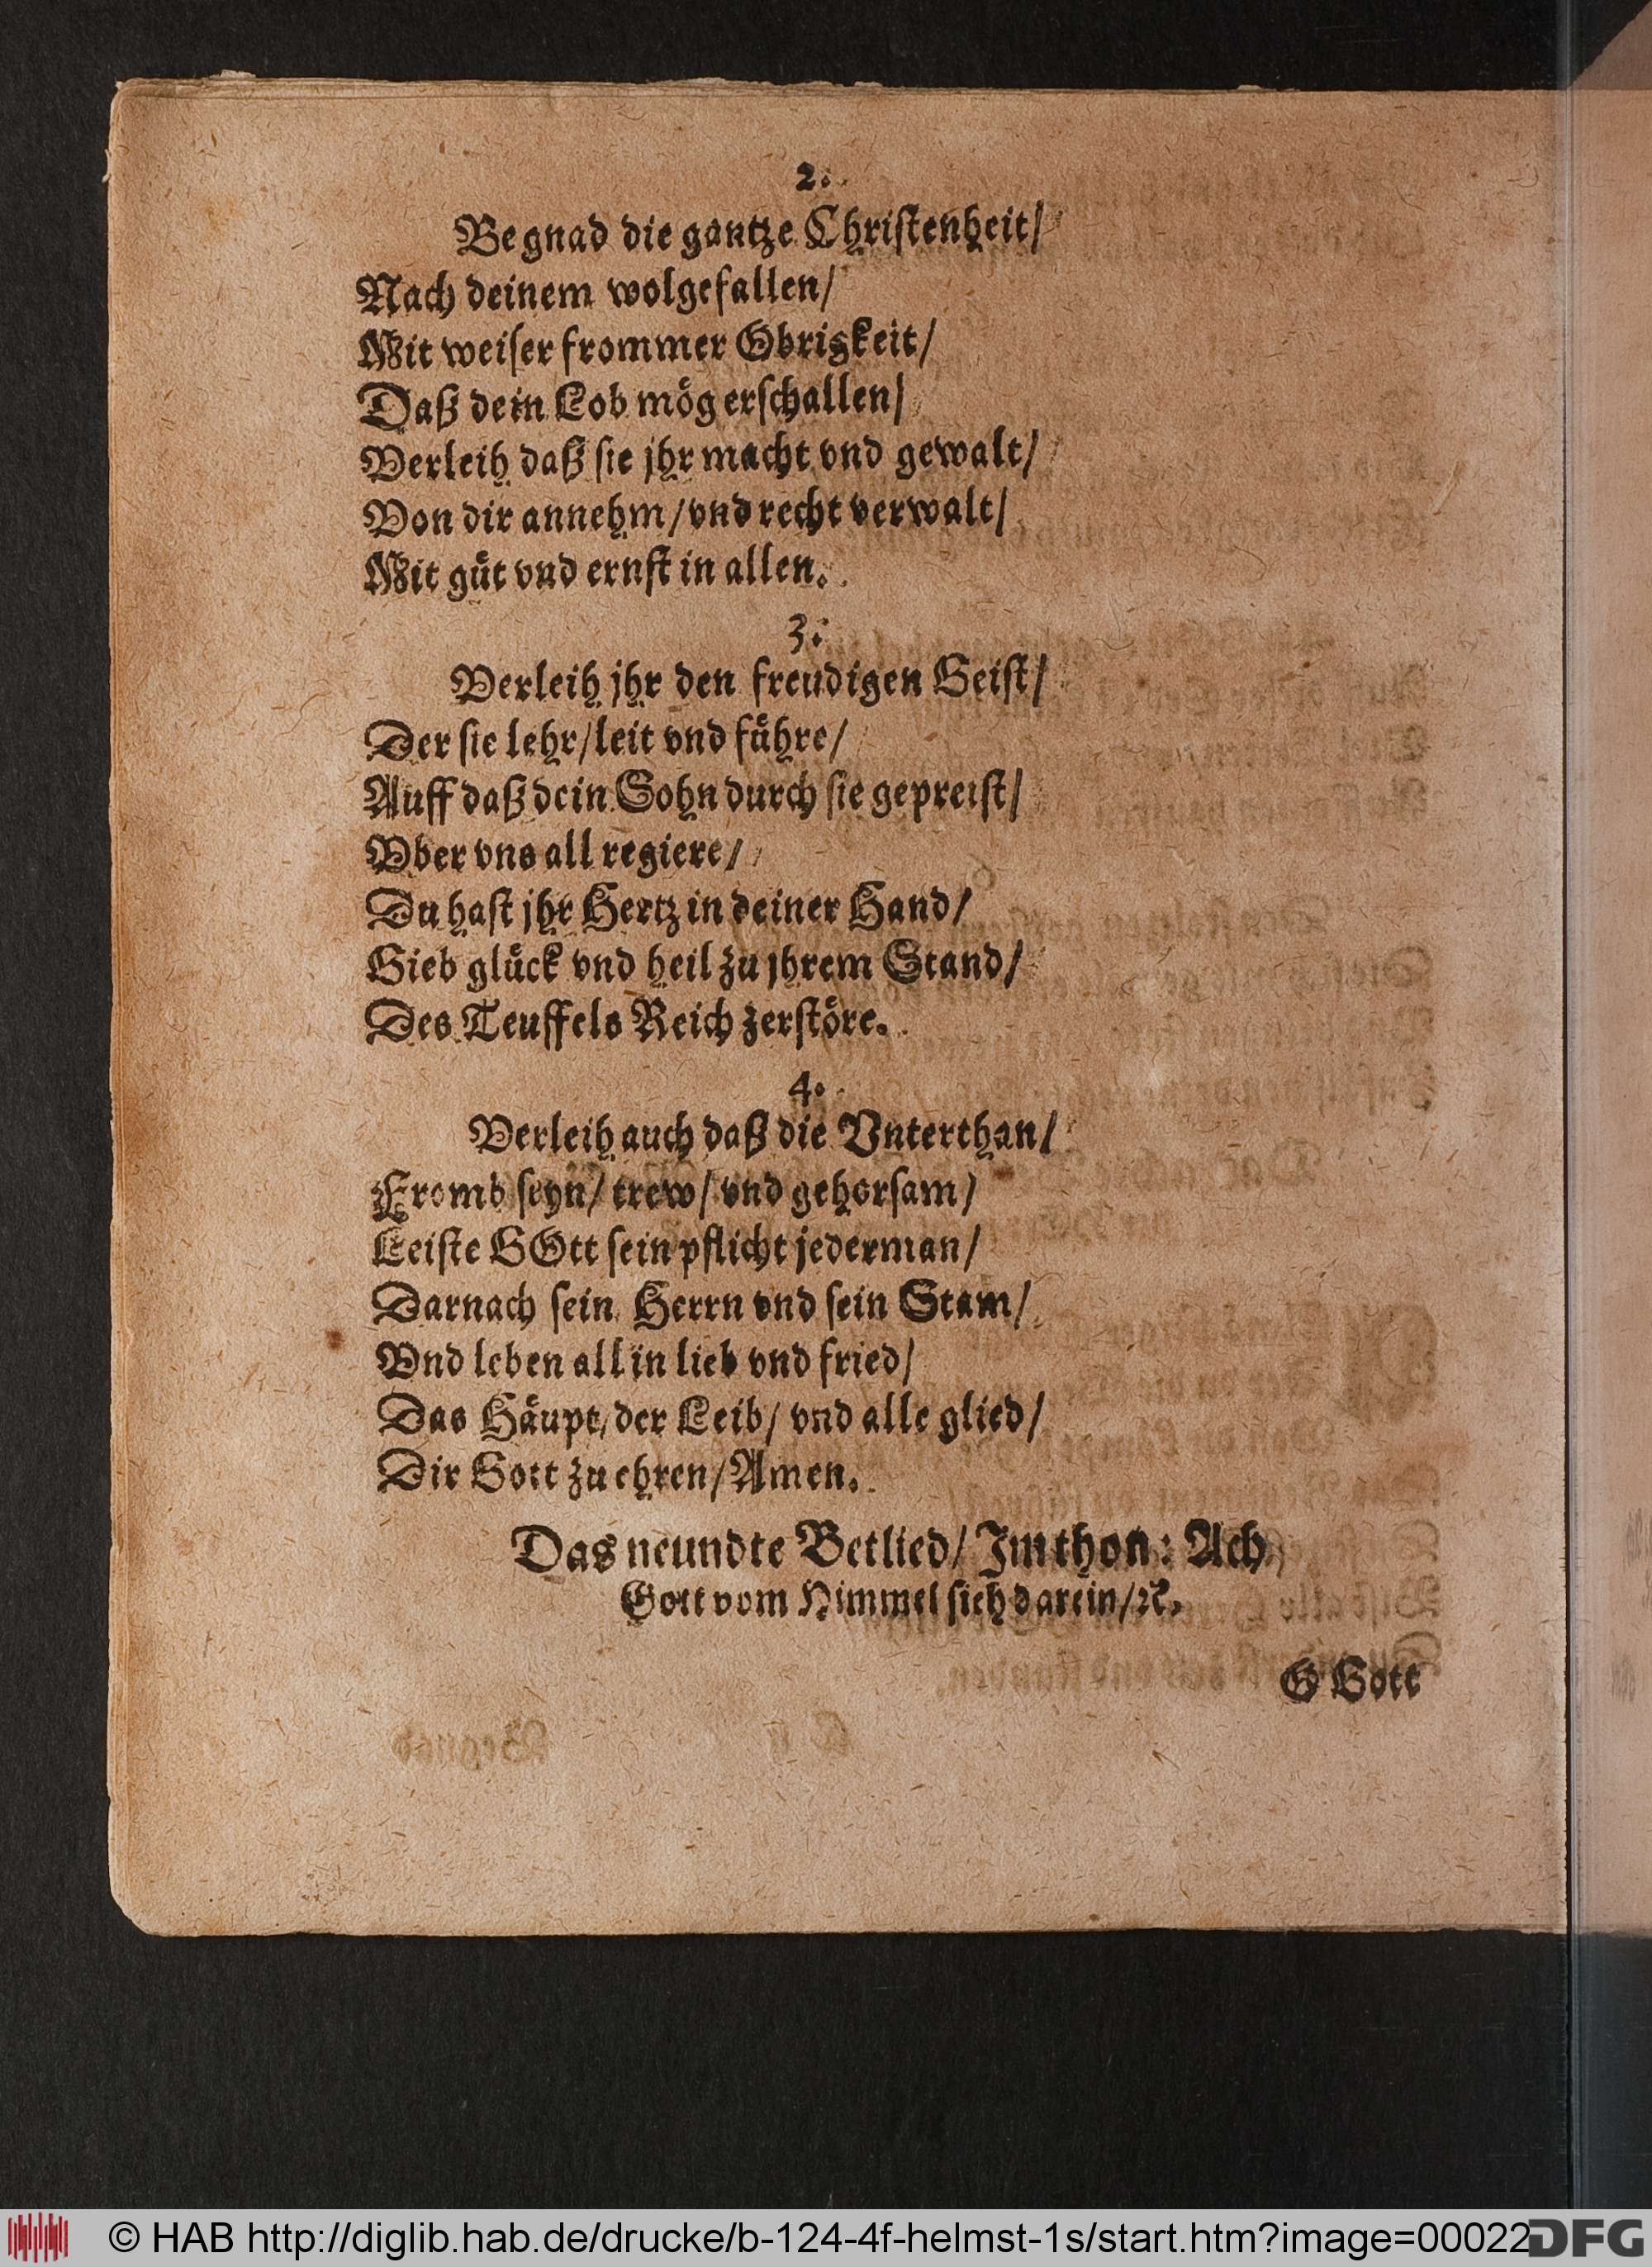 2.
Begnad die gantze Christenheit/
Nach deinem wolgefallen/
Mit weiser frommer Obrigkeit/
Daß dein Lob mög erschallen/
Verleih daß sie jhr macht vnd gewalt/
Von dir annehm/vnd recht verwalt/
Mit güt vnd ernst in allen.
3.
Verleih jhr den freudigen Geist/
Der sie lehr/leit vnd führe/
Auff daß dein Sohn durch sie gepreist/
Vber vns all regiere/
Du hast jhr Hertz in deiner Hand/
Gieb glück vnd heil zu jhrem Stand/
Des Teuffels Reich zerstöre.
4.
Verleih auch daß die Vnterthan/
Fromb seyn/ trew/ vnd gehorsam/
Leiste GOtt sein pflicht jederman/
Darnach sein Herrn vnd sein Stam/
Vnd leben all in lieb vnd fried/
Das Häupt/der Leib/ vnd alle glied/
Dir Gott zu ehren/Amen.
Das neundte Betlied/ Jm thon: Ach
Gott vom Himmel sieh darein/ꝛc.
O Gott
© HAB http://diglib.hab.de/drucke/b-124-4f-helmst-1s/start.htm?image=00022
DFG